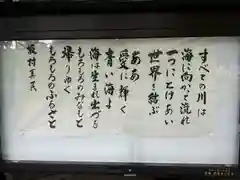 すべての川は
海に向かて流れ
一つにとけあい
世界を結ぶ
ああ
愛に輝く
青い海よ
海は生まれ出づる
もろもろのみなもと
帰りゆく
もろもろのふるさと
坂村真民